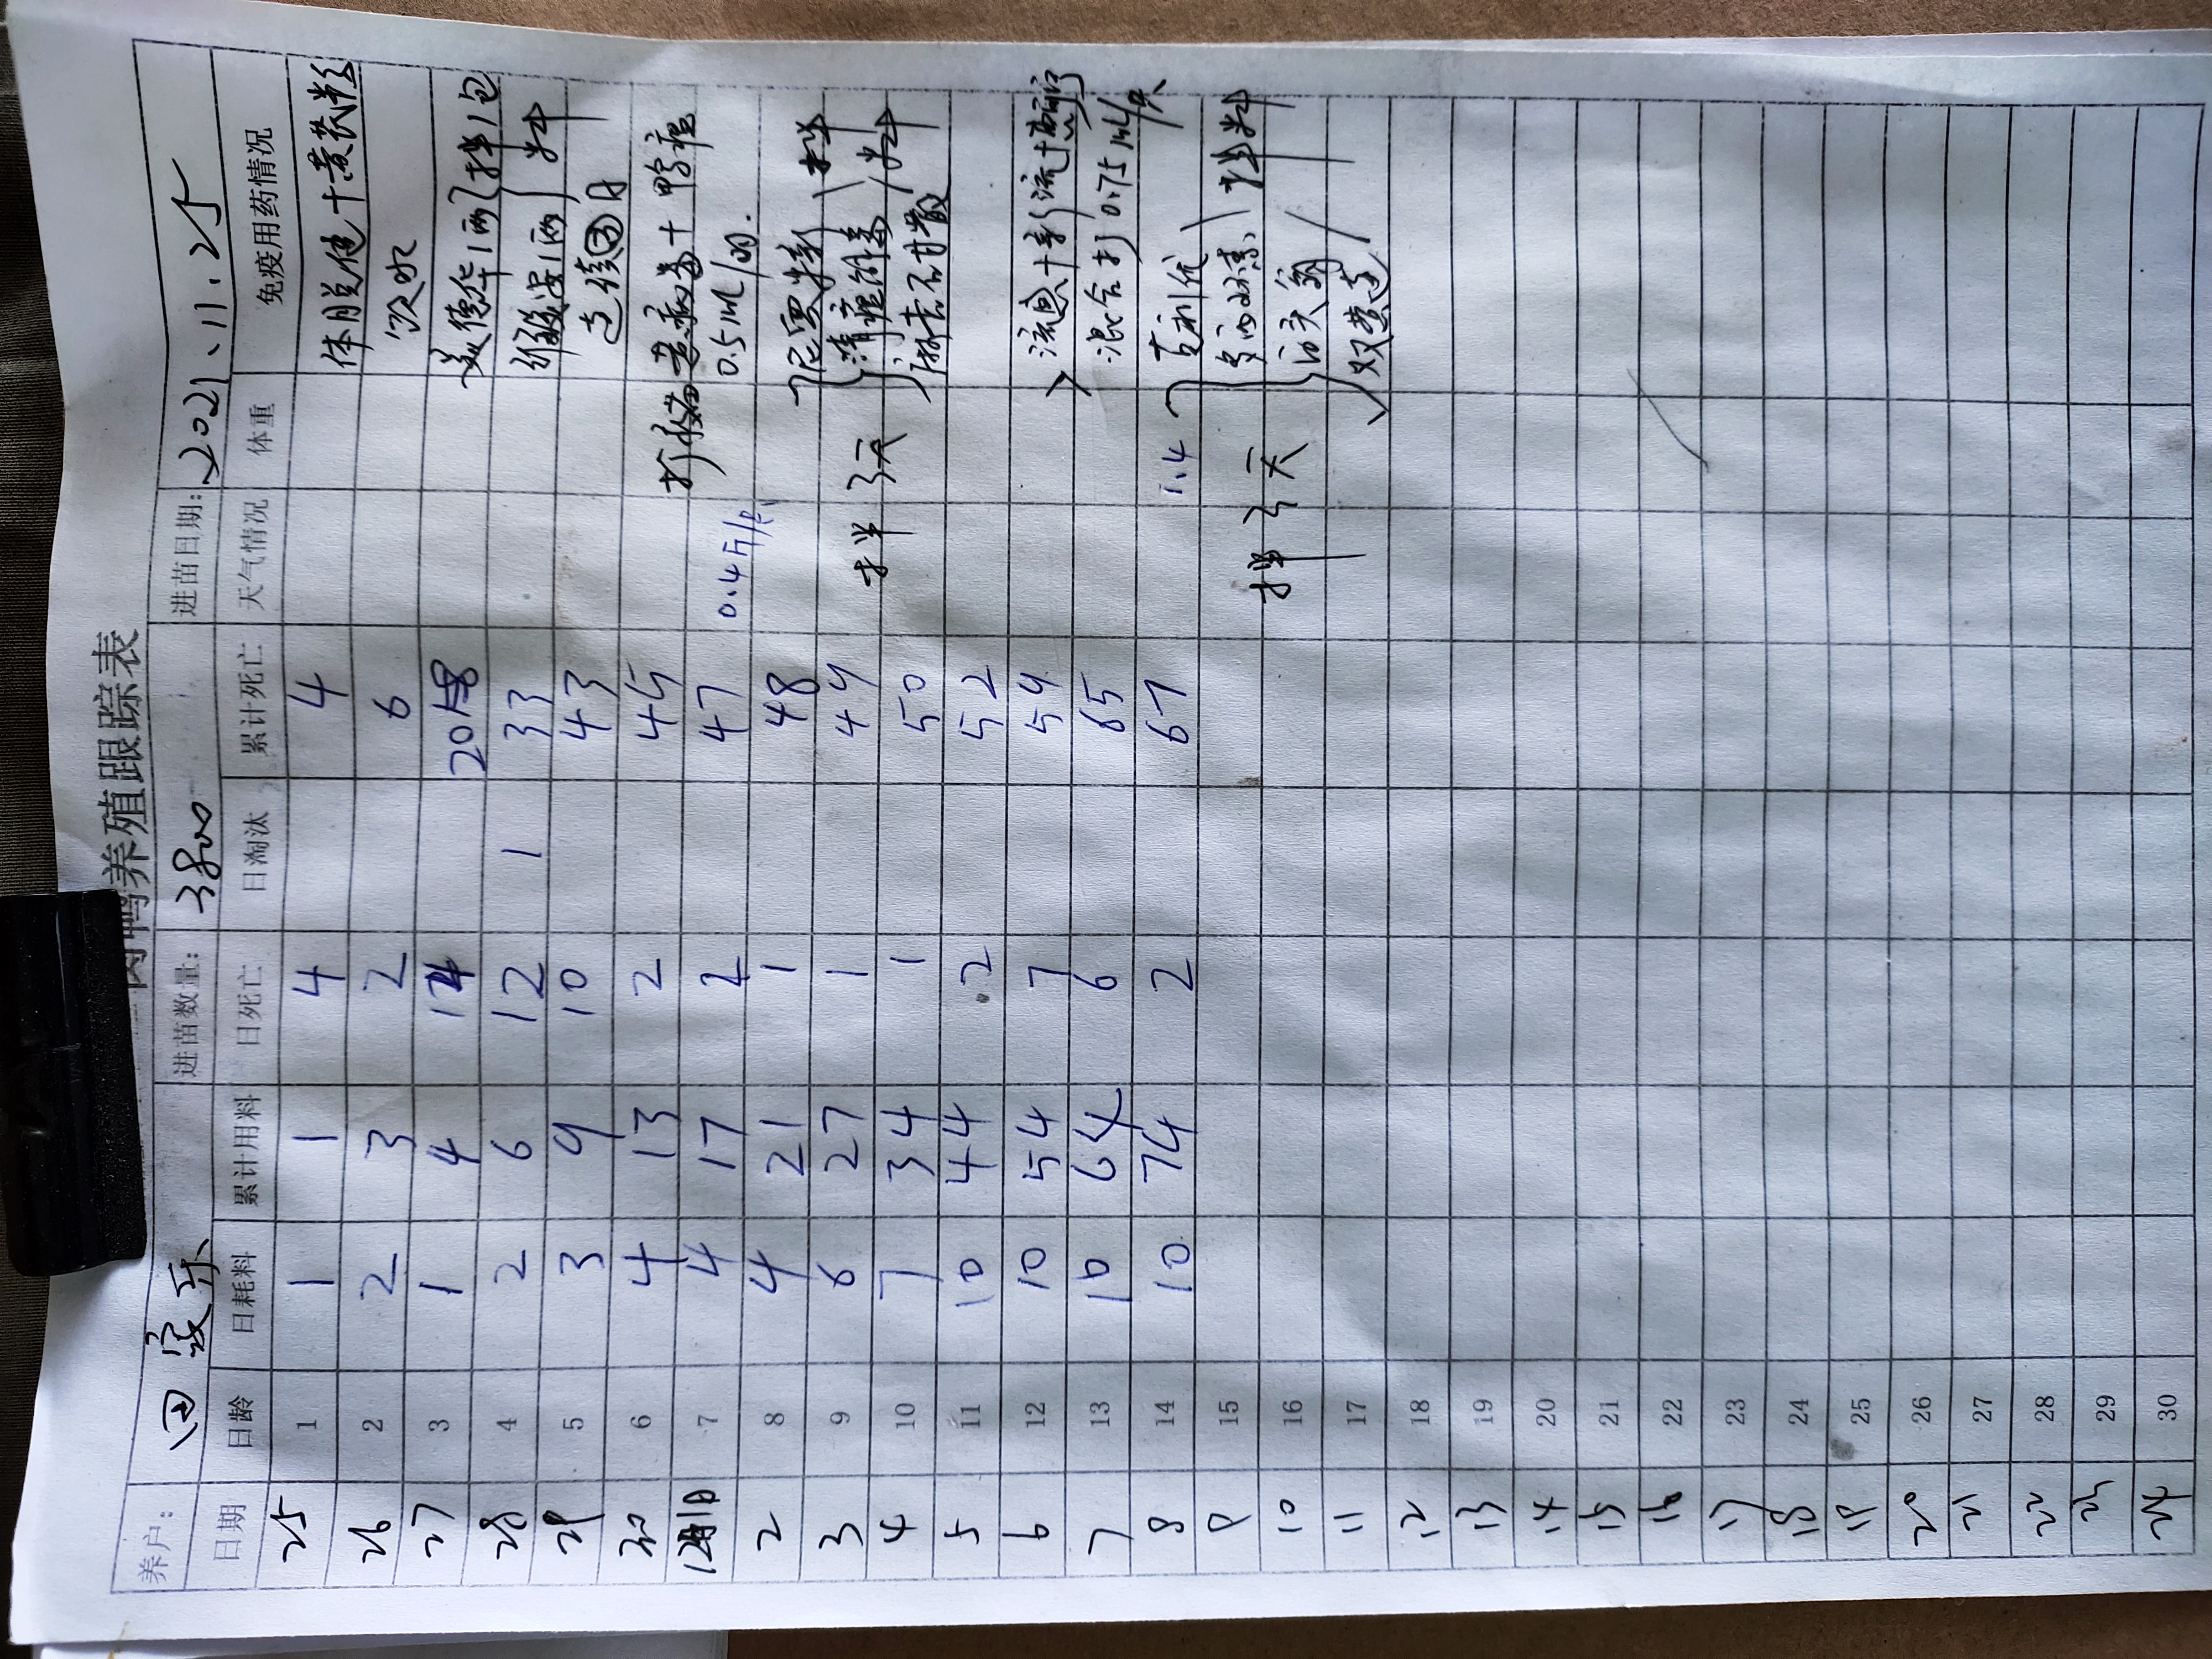 肉鸭养殖跟踪表
养户： 田家乐 进苗数量： 3800 进苗日期： 2021.11.25
日期 日龄 日耗料 累计用料 日死亡 日淘汰 累计死亡 天气情况 体重 免疫用药情况
25 1 1 1 4 4
26 2 2 3 2 6 饮水
27 3 1 4 14 20 拌1包
28 4 2 6 12 1 33 1两 料
29 5 3 9 10 43 连续四日
30 6 4 13 2 45 打 + 鸭瘟
12月1日 7 4 17 2 47 0.4斤/只 0.5ml/只
2 8 4 21 1 48 拌
3 9 6 27 1 49 拌3天 清瘟 料
4 10 7 34 1 50 麻杏石甘散
5 11 10 44 2 52
6 12 10 54 7 59 流感+新流+
7 13 10 64 6 65 混合打0.75ml/只
8 14 10 74 2 67 1.4
9 15 拌3天 拌料
10 16 白头翁
11 17 双黄连
12 18
13 19
14 20
15 21
16 22
17 23
18 24
19 25
20 26
21 27
22 28
23 29
24 30